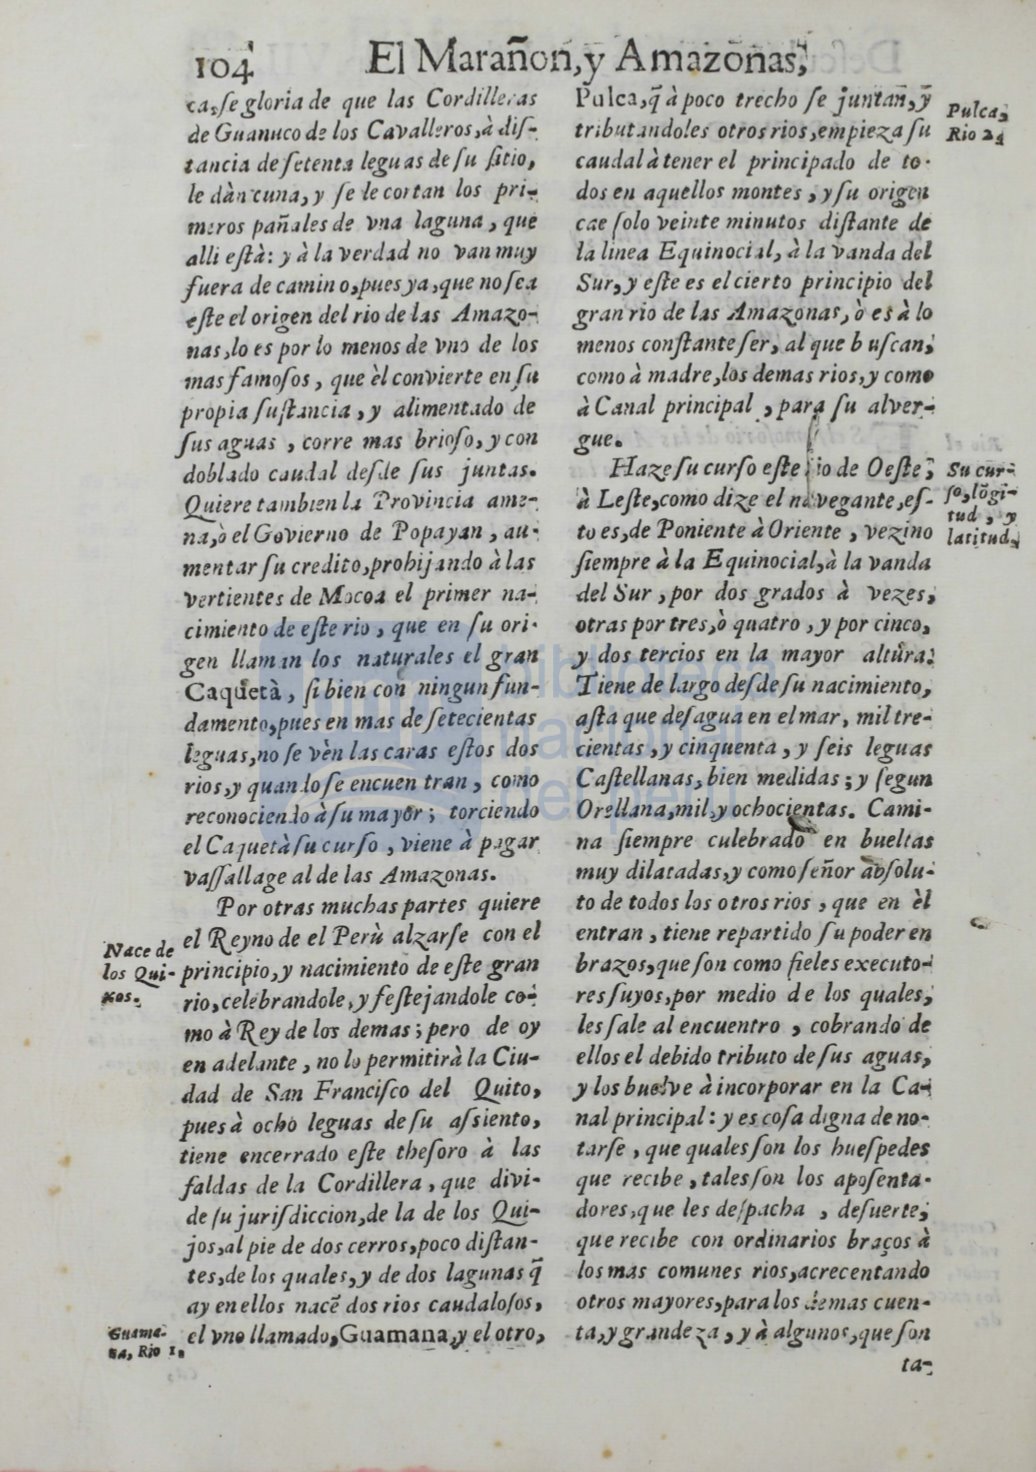 104
El Marañon, y Amazonas,
ca, se gloria de que las Cordilleras
de Guanuco de los Cavalleros, à dis-
tancia de setenta leguas de su sitio,
le dàn cuna, y se le cortan los pri-
meros pañales de vna laguna, que
alli està: y à la verdad no van muy
fuera de camino, pues ya, que no sea
este el origen del rio de las Amazo-
nas, lo es por lo menos de vno de los
mas famosos, que èl convierte en su
propia sustancia, y alimentado de
sus aguas, corre mas brioso, y con
doblado caudal desde sus juntas.
Quiere tambien la Provincia ame-
na, ò el Govierno de Popayan, au-
mentar su credito, prohijando à las
vertientes de Mocoa el primer na-
cimiento de este rio, que en su ori-
gen llaman los naturales el gran
Caquetà, si bien con ningun fun-
damento, pues en mas de setecientas
leguas, no se vèn las caras estos dos
rios, y quando se encuentran, como
reconociendo à su mayor; torciendo
el Caquetà su curso, viene à pagar
vassallage al de las Amazonas.
Por otras muchas partes quiere
el Reyno de el Perù alzarse con el
principio, y nacimiento de este gran
rio, celebrandole, y festejandole co-
mo à Rey de los demas; pero de oy
en adelante, no lo permitirà la Ciu-
dad de San Francisco del Quito,
pues à ocho leguas de su assiento,
tiene encerrado este thesoro à las
faldas de la Cordillera, que divi-
de su jurisdiccion, de la de los Qui-
jos, al pie de dos cerros, poco distan-
tes, de los quales, y de dos lagunas q̃
ay en ellos nacẽ dos rios caudalosos,
el vno llamado, Guamana, y el otro,
Nace de
los Qui-
xos.
Guama-
na, Rio 1.
Pulca, q̃ à poco trecho se juntan, y
tributandoles otros rios, empieza su
caudal à tener el principado de to-
dos en aquellos montes, y su origen
cae solo veinte minutos distante de
la linea Equinocial, à la vanda del
Sur, y este es el cierto principio del
gran rio de las Amazonas, ò es à lo
menos constante ser, al que buscan,
como à madre, los demas rios, y como
à Canal principal, para su alver-
gue.
Haze su curso este rio de Oeste,
à Leste, como dize el navegante, es-
to es, de Poniente à Oriente, vezino
siempre à la Equinocial, à la vanda
del Sur, por dos grados à vezes,
otras por tres, ò quatro, y por cinco,
y dos tercios en la mayor altura.
Tiene de largo desde su nacimiento,
asta que desagua en el mar, mil tre-
cientas, y cinquenta, y seis leguas
Castellanas, bien medidas; y segun
Orellana, mil, y ochocientas. Cami-
na siempre culebrado en bueltas
muy dilatadas, y como señor absolu-
to de todos los otros rios, que en èl
entran, tiene repartido su poder en
brazos, que son como fieles executo-
res suyos, por medio de los quales,
les sale al encuentro, cobrando de
ellos el debido tributo de sus aguas,
y los buelve à incorporar en la Ca-
nal principal: y es cosa digna de no-
tarse, que quales son los huespedes
que recibe, tales son los aposenta-
dores, que les despacha, desuerte,
que recibe con ordinarios braços à
los mas comunes rios, acrecentando
otros mayores, para los demas cuen-
ta, y grandeza, y à algunos, que son
ta-
Pulca,
Rio 2.
Su cur-
so, lõgi-
tud, y
latitud.
biblioteca
nacional